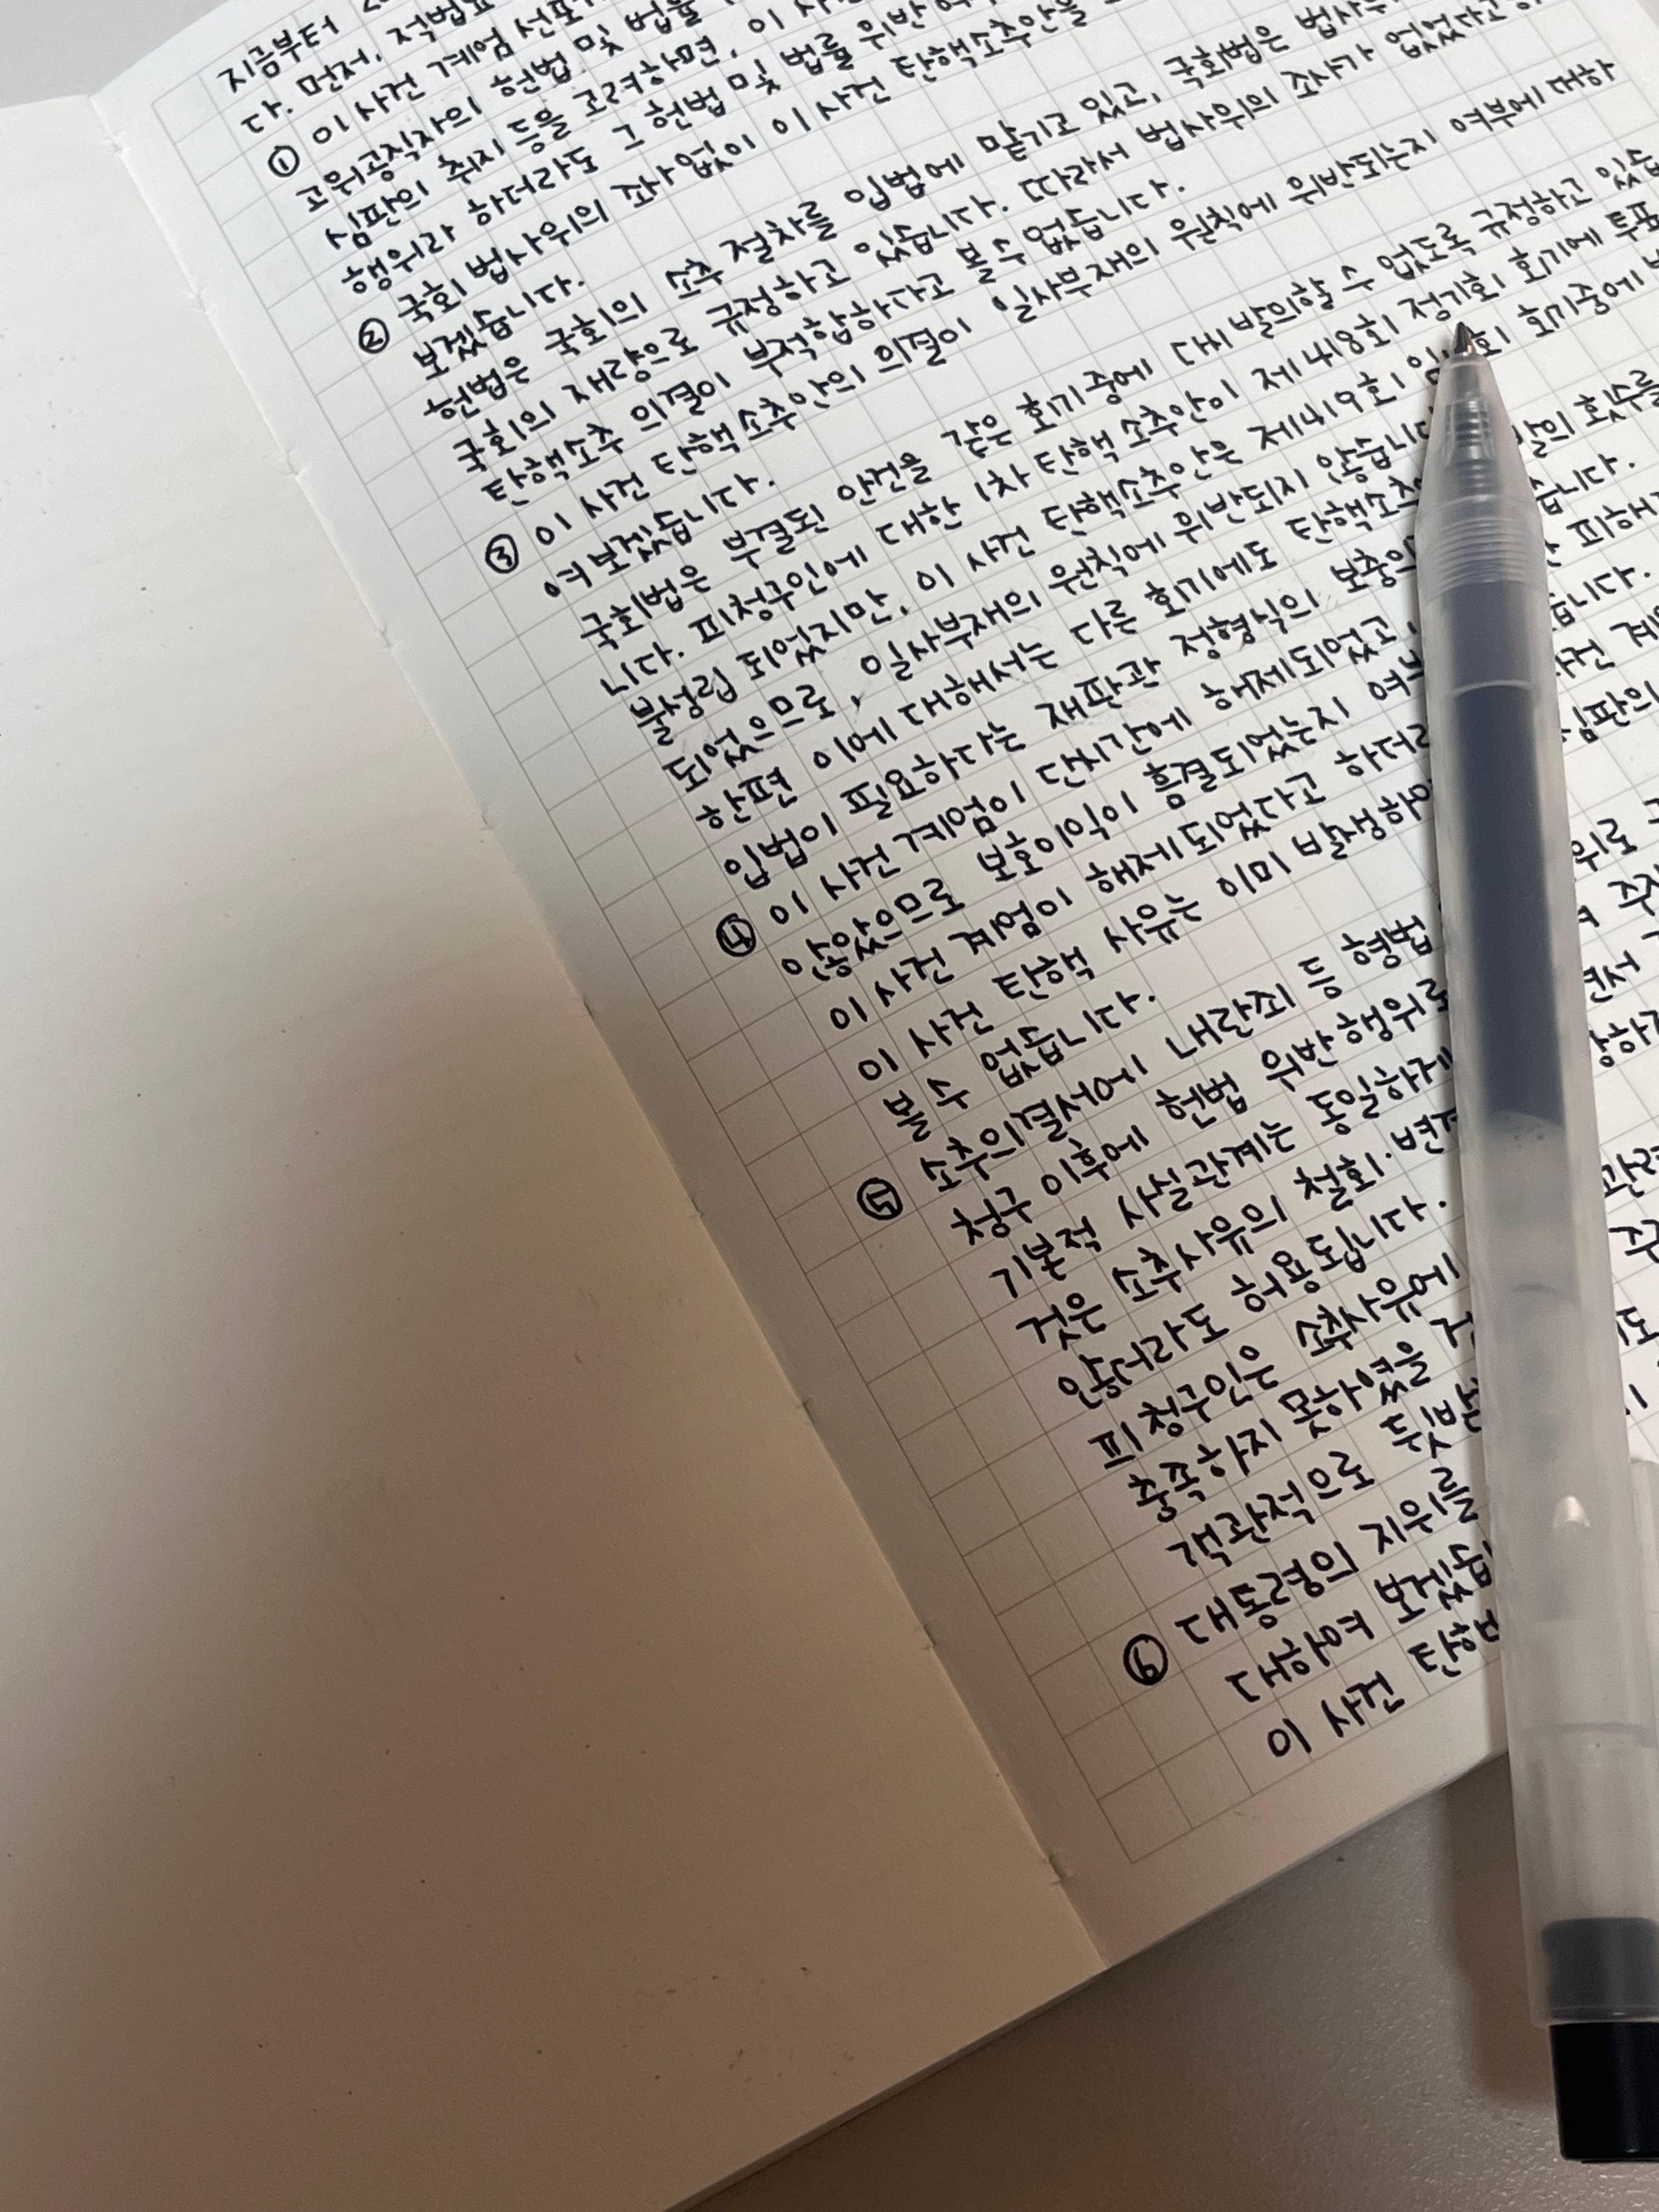 지금부터
다. 먼저, 적법요
① 이 사건 계엄 선포
고위공직자의 헌법 및 법률
심판의 취지 등을 고려하면, 이 사
행위라 하더라도 그 헌법 및 법률 위반 여
② 국회 법사위의 조사없이 이 사건 탄핵소추안을
보겠습니다.
헌법은 국회의 소추 절차를 입법에 맡기고 있고, 국회법은 법사위
국회의 재량으로 규정하고 있습니다. 따라서 법사위의 조사가 없었다고
탄핵소추 의결이 부적합하다고 볼 수 없습니다.
③ 이 사건 탄핵소추안의 의결이 일사부재의 원칙에 위반되는지 여부에 대하
여 보겠습니다.
국회법은 부결된 안건을 같은 회기중에 다시 발의할 수 없도록 규정하고 있습
니다. 피청구인에 대한 1차 탄핵소추안이 제418회 정기회 회기에 투표
불성립 되었지만, 이 사건 탄핵소추안은 제419회 임시회 회기중에
되었으므로, 일사부재의 원칙에 위반되지 않습니다
한편 이에 대해서는 다른 회기에도 탄핵소추 발의 횟수를
입법이 필요하다는 재판관 정형식의 보충의 습니다.
④ 이 사건 계엄이 단시간에 해제되었고, 피해
않았으므로 보호이익이 흠결되었는지 여부 습니다.
이 사건 계엄이 해제되었다고 하더라 사건 계
이 사건 탄핵 사유는 이미 발생하여 심판의
볼 수 없습니다.
⑤ 소추의결서에서 내란죄 등 형법 위로
청구 이후에 헌법 위반행위로 주
기본적 사실관계는 동일하게 면서
것은 소추사유의 철회·변경
않더라도 허용됩니다.
피청구인은 소추사유에
충족하지 못하였을
객관적으로 뒷받
⑥ 대통령의 지위를
대하여 보겠습
이 사건 탄핵